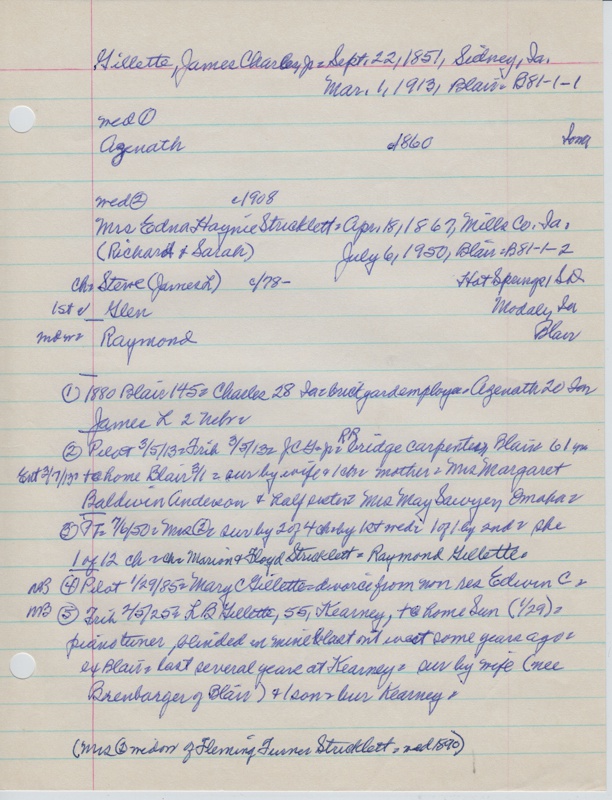 Gillette, James Charles, Jr = Sept. 22, 1851, Sidney, Ia.
Mar. 1, 1913, Blair = B81-1-1
med ①
Agenath c1860 Iowa
med ② c1908
Mrs Edna Haynie Stricklett = Apr. 18, 1867, Mills Co. Ia.
(Richard & Sarah) July 6, 1950, Blair = B81-1-2
ch = Steve (James L) c/78- Hot Springs, SD
1st Glen Modale, Ia
Raymond Blair
① 1880 Blair 145 = Charles 28 Ia = brickyard employee = Agenath 20 Iow
James L 2 Nebr =
② Pilot 3/5/13 = Trib 3/5/13 = JC G = Jr = RR bridge carpenter, Blair = 61 yrs
Ent 3/7/13 = + @ home Blair 3/1 = sur by wife + 1 ch = mother = Mrs Margaret
Baldwin Anderson + half sister = Mrs May Sawyer, Omaha =
③ 7/6/50 = Mrs ② = sur by 2 of 4 ch by 1st med = 1 of 1 by 2nd = she
1 of 12 ch = ch = Marion & Floyd Stricklett = Raymond Gillette =
④ Pilot 1/29/85 = Mary C Gillette = divorce from non res Edwin C =
⑤ Trib 2/5/25 = L B Gillette, 55, Kearney, + @ home Sun (1/29) =
piano tuner, blinded in mine blast out west some years ago =
ex Blair = last several years at Kearney = sur by wife (nee
Brenbarger of Blair) + 1 son = bur Kearney =
(Mrs ② widow of Fleming Turner Stricklett = med 1890)